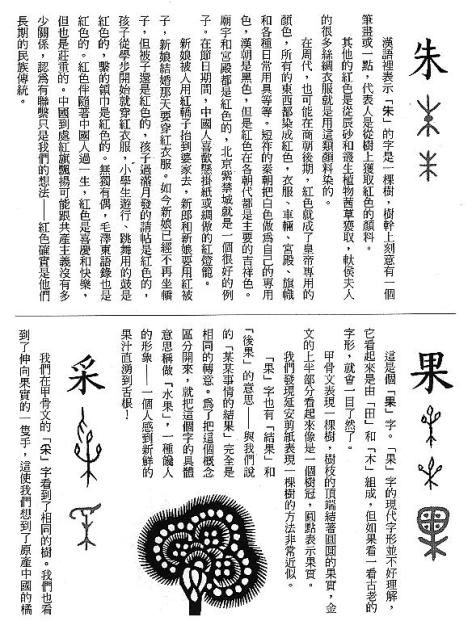 朱
漢語裡表示「朱」的字是一棵樹，樹幹上刻意有一個
筆畫或一點，代表人是從樹上獲取紅色的顏料。
其他的紅色是從辰砂和叢生植物茜草獲取，軑侯夫人
的很多絲綢衣服就是用這類顏料染的。
在周代，也可能在商朝後期，紅色就成了皇帝專用的
顏色，所有的東西都染成紅色，衣服、車輛、宮殿、旗幟
和各種日常用具等等。短祚的秦朝把白色做爲自己的專用
色，漢朝是黑色，但是紅色在各朝代都是主要的吉祥色。
廟宇和宮殿都是紅色的，北京紫禁城就是一個很好的例
子。在節日期間，中國人喜歡懸掛紙或綢做的紅燈籠。
新娘被人用紅轎子抬到婆家去，新郎和新娘要用紅被
子，新娘結婚那天要穿紅衣服。如今新娘已經不再坐轎
子，但被子還是紅色的，孩子過滿月發的請帖是紅色的，
孩子從學步開始就穿紅衣服，小學生遊行、跳舞用的鼓是
紅色的，繫的領巾是紅色的。無獨有偶，毛澤東語錄也是
紅色的。紅色伴隨著中國人過一生，紅色是喜慶和快樂，
但也是莊重的。中國到處紅旗飄揚可能跟共產主義沒有多
少關係，認爲有聯繫只是我們的想法——紅色確實是他們
長期的民族傳統。
果
這是個「果」字。「果」字的現代字形並不好理解，
它看起來是由「田」和「木」組成，但如果看一看古老的
字形，就會一目了然了。
甲骨文表現一棵樹，樹枝的頂端結著圓圓的果實，金
文的上半部分看起來像是一個樹冠，圓點表示果實。
我們發現延安剪紙表現一棵樹的方法非常近似。
「果」字也有「結果」和
「後果」的意思——與我們說
的「某某事情的結果」完全是
相同的轉意。爲了把這個概念
區分開來，就把這個字的具體
意思稱做「水果」，一種饞人
的形象——一個人感到新鮮的
果汁直湧到舌根！
采
我們在甲骨文的「采」字看到了相同的樹。我們也看
到了伸向果實的一隻手，這使我們想到了原產中國的橘